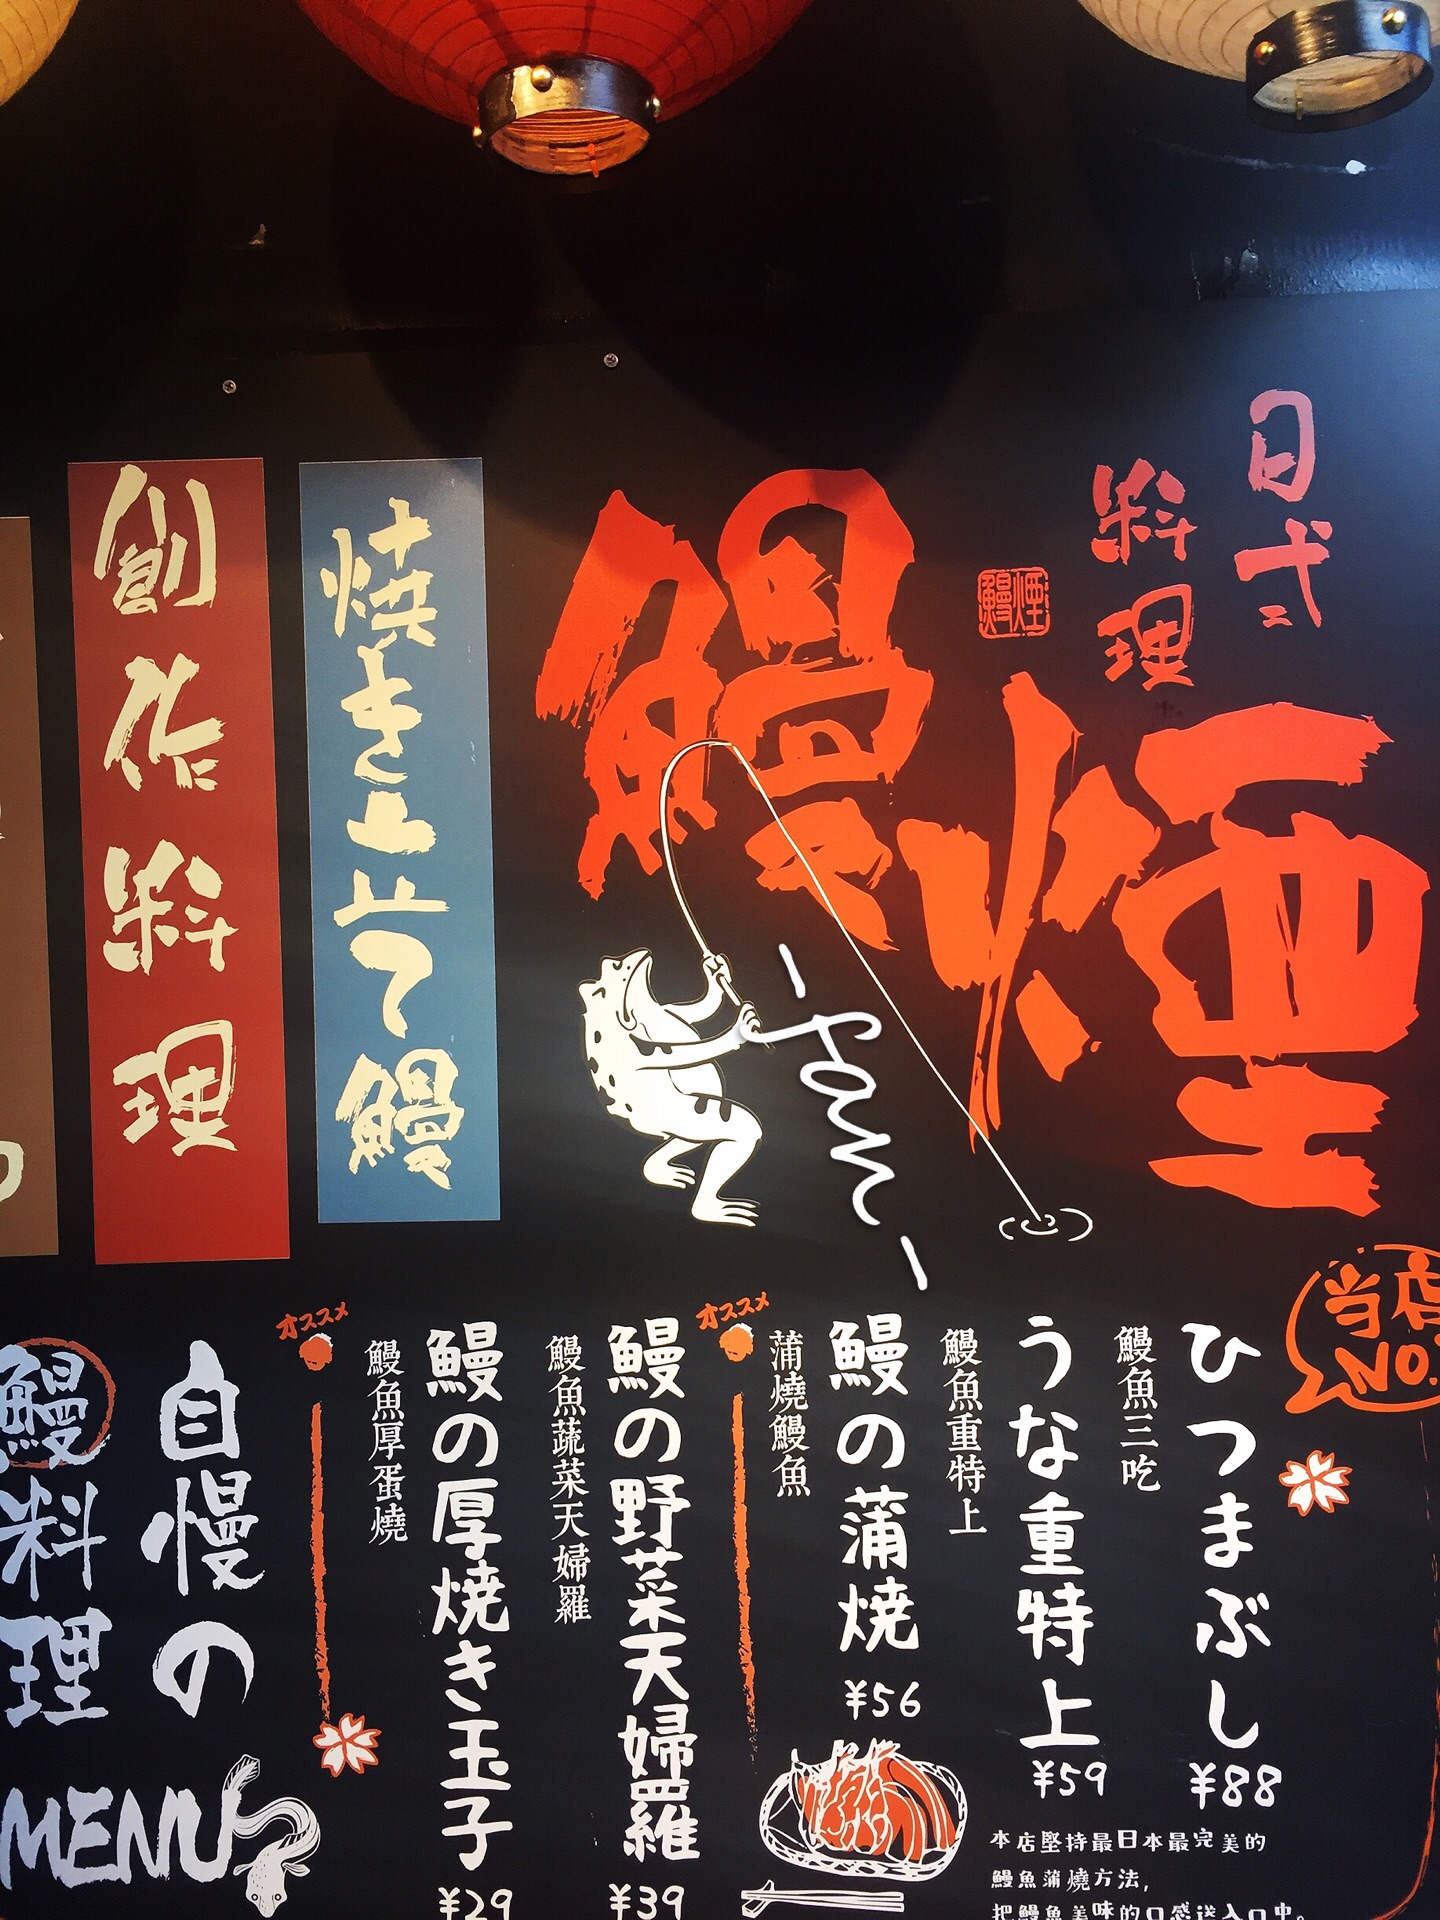 日式
料理
鰻煙
鰻煙
焼き上立て鰻
創作料理
当店
NO.
ひつまぶし
¥88
鰻魚三吃
うな重特上
¥59
鰻魚重特上
鰻の蒲焼
¥56
蒲燒鰻魚
オススメ
鰻の野菜天婦羅
¥39
鰻魚蔬菜天婦羅
鰻の厚焼き玉子
¥29
鰻魚厚蛋燒
オススメ
自慢の
鰻料理
MENU
本店堅持最日本最完美的
鰻魚蒲燒方法,
把鰻魚美味的口感送入口中。